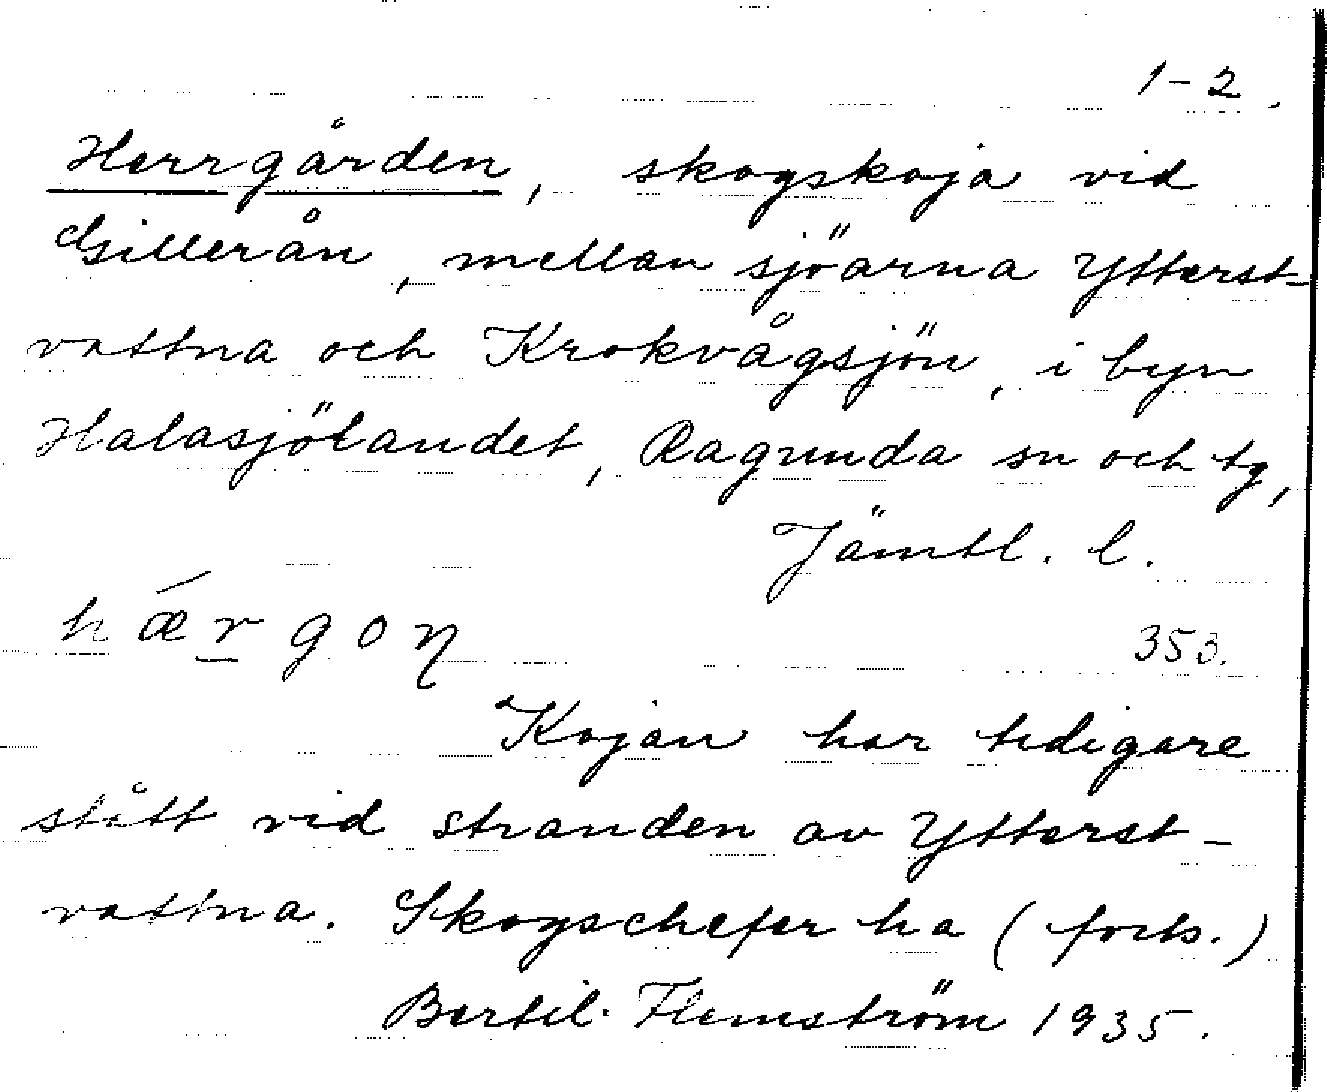 1-2.
Herrgården, skogskoja vid
Gillerån, mellan sjöarna Ytterst-
vattna och Krokvågsjön, i byn
Halasjölandet, Ragunda sn och tg,
Jämtl. l.
hǽrgoꞑ
353.
Kojan har tidigare
stått vid stranden av Ytterst-
vattna. Skogschefer ha (forts.)
Bertil Flemström 1935.